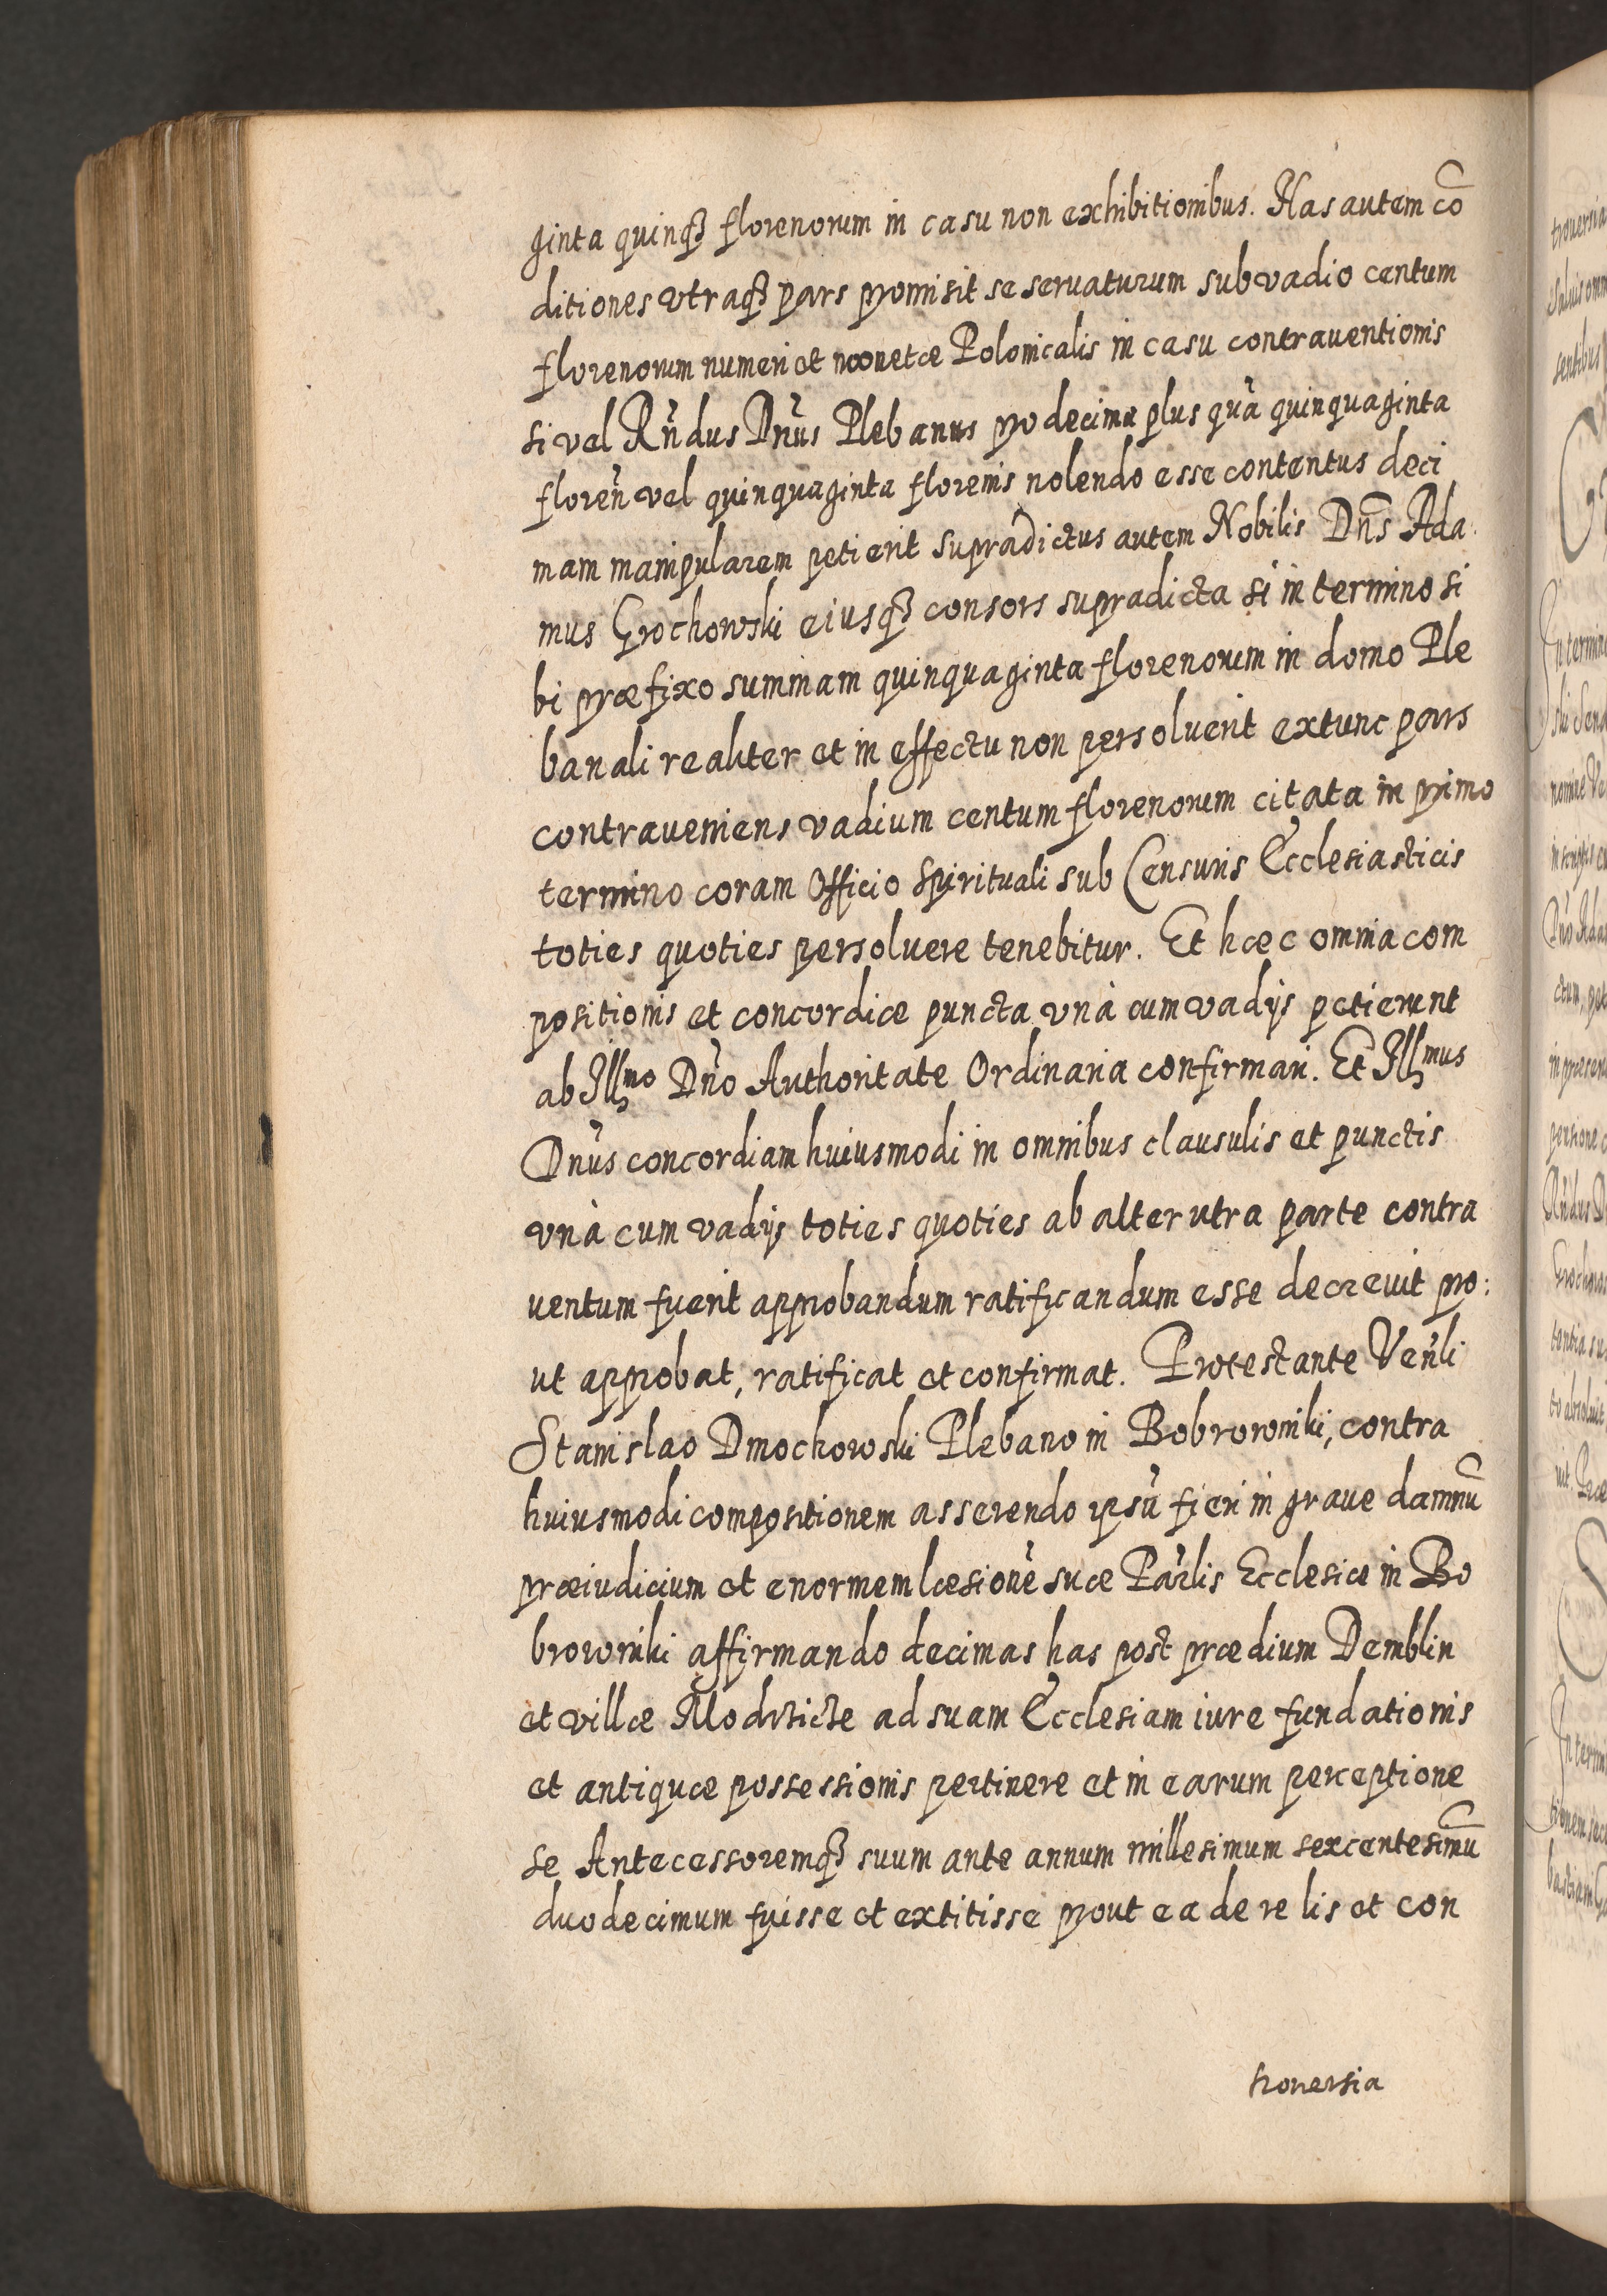 ginta quinqꝫ florenorum in casu non exhibitionibus. Has autem cō
ditiones vtraqꝫ pars promisit se seruaturum sub vadio centum
florenorum numeri et monetæ Polonicalis in casu contrauentionis
si vel Rñdus Dñus Plebanus pro decima plus quã quinquaginta
floreñ vel quinquaginta florenis nolendo esse contentus deci
mam manipularem petierit supradictus autem Nobilis Dñs Ada
mus Grochowski eiusqꝫ consors supradicta si in termino si
bi præfixo summam quinquaginta florenorum in domo Ple
banali realiter et in effectu non persoluerit extunc pars
contraueniens vadium centum florenorum citata in primo
termino coram Officio Spirituali sub Censuris Ecclesiasticis
toties quoties persoluere tenebitur. Et hæc omnia com
positionis et concordiæ puncta vnà cum vadijs petierunt
ab Illmo Dño Authoritate Ordinaria confirmari. Et Illmus
Dñus concordiam huiusmodi in omnibus clausulis et punctis
vnà cum vadijs toties quoties ab alterutra parte contra
uentum fuerit approbandum ratificandum esse decreuit pro:
ut approbat, ratificat et confirmat. Protestante Veñli
Stanislao Dmochowski Plebano in Bobrowniki, contra
huiusmodi compositionem asserendo ipsũ fieri in graue damnũ
præiudicium et enormem læsionẽ suæ Parlis Ecclesiæ in Bo
browniki affirmando decimas has post prædium Demblin
et villæ ad suam Ecclesiam iure fundationis
et antiquæ possessionis pertinere et in earum perceptione
se Antecessoremqꝫ suum ante annum millesimum sexcentesimũ
duodecimum fuisse et extitisse prout ea de re lis et con
trouersia